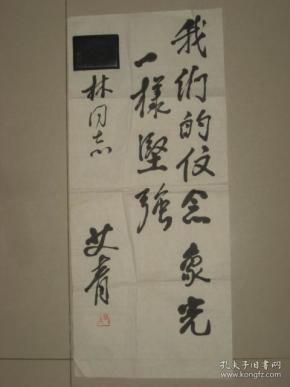 我们的信念象光
一樣堅強
林同志
艾青
孔夫子旧书网